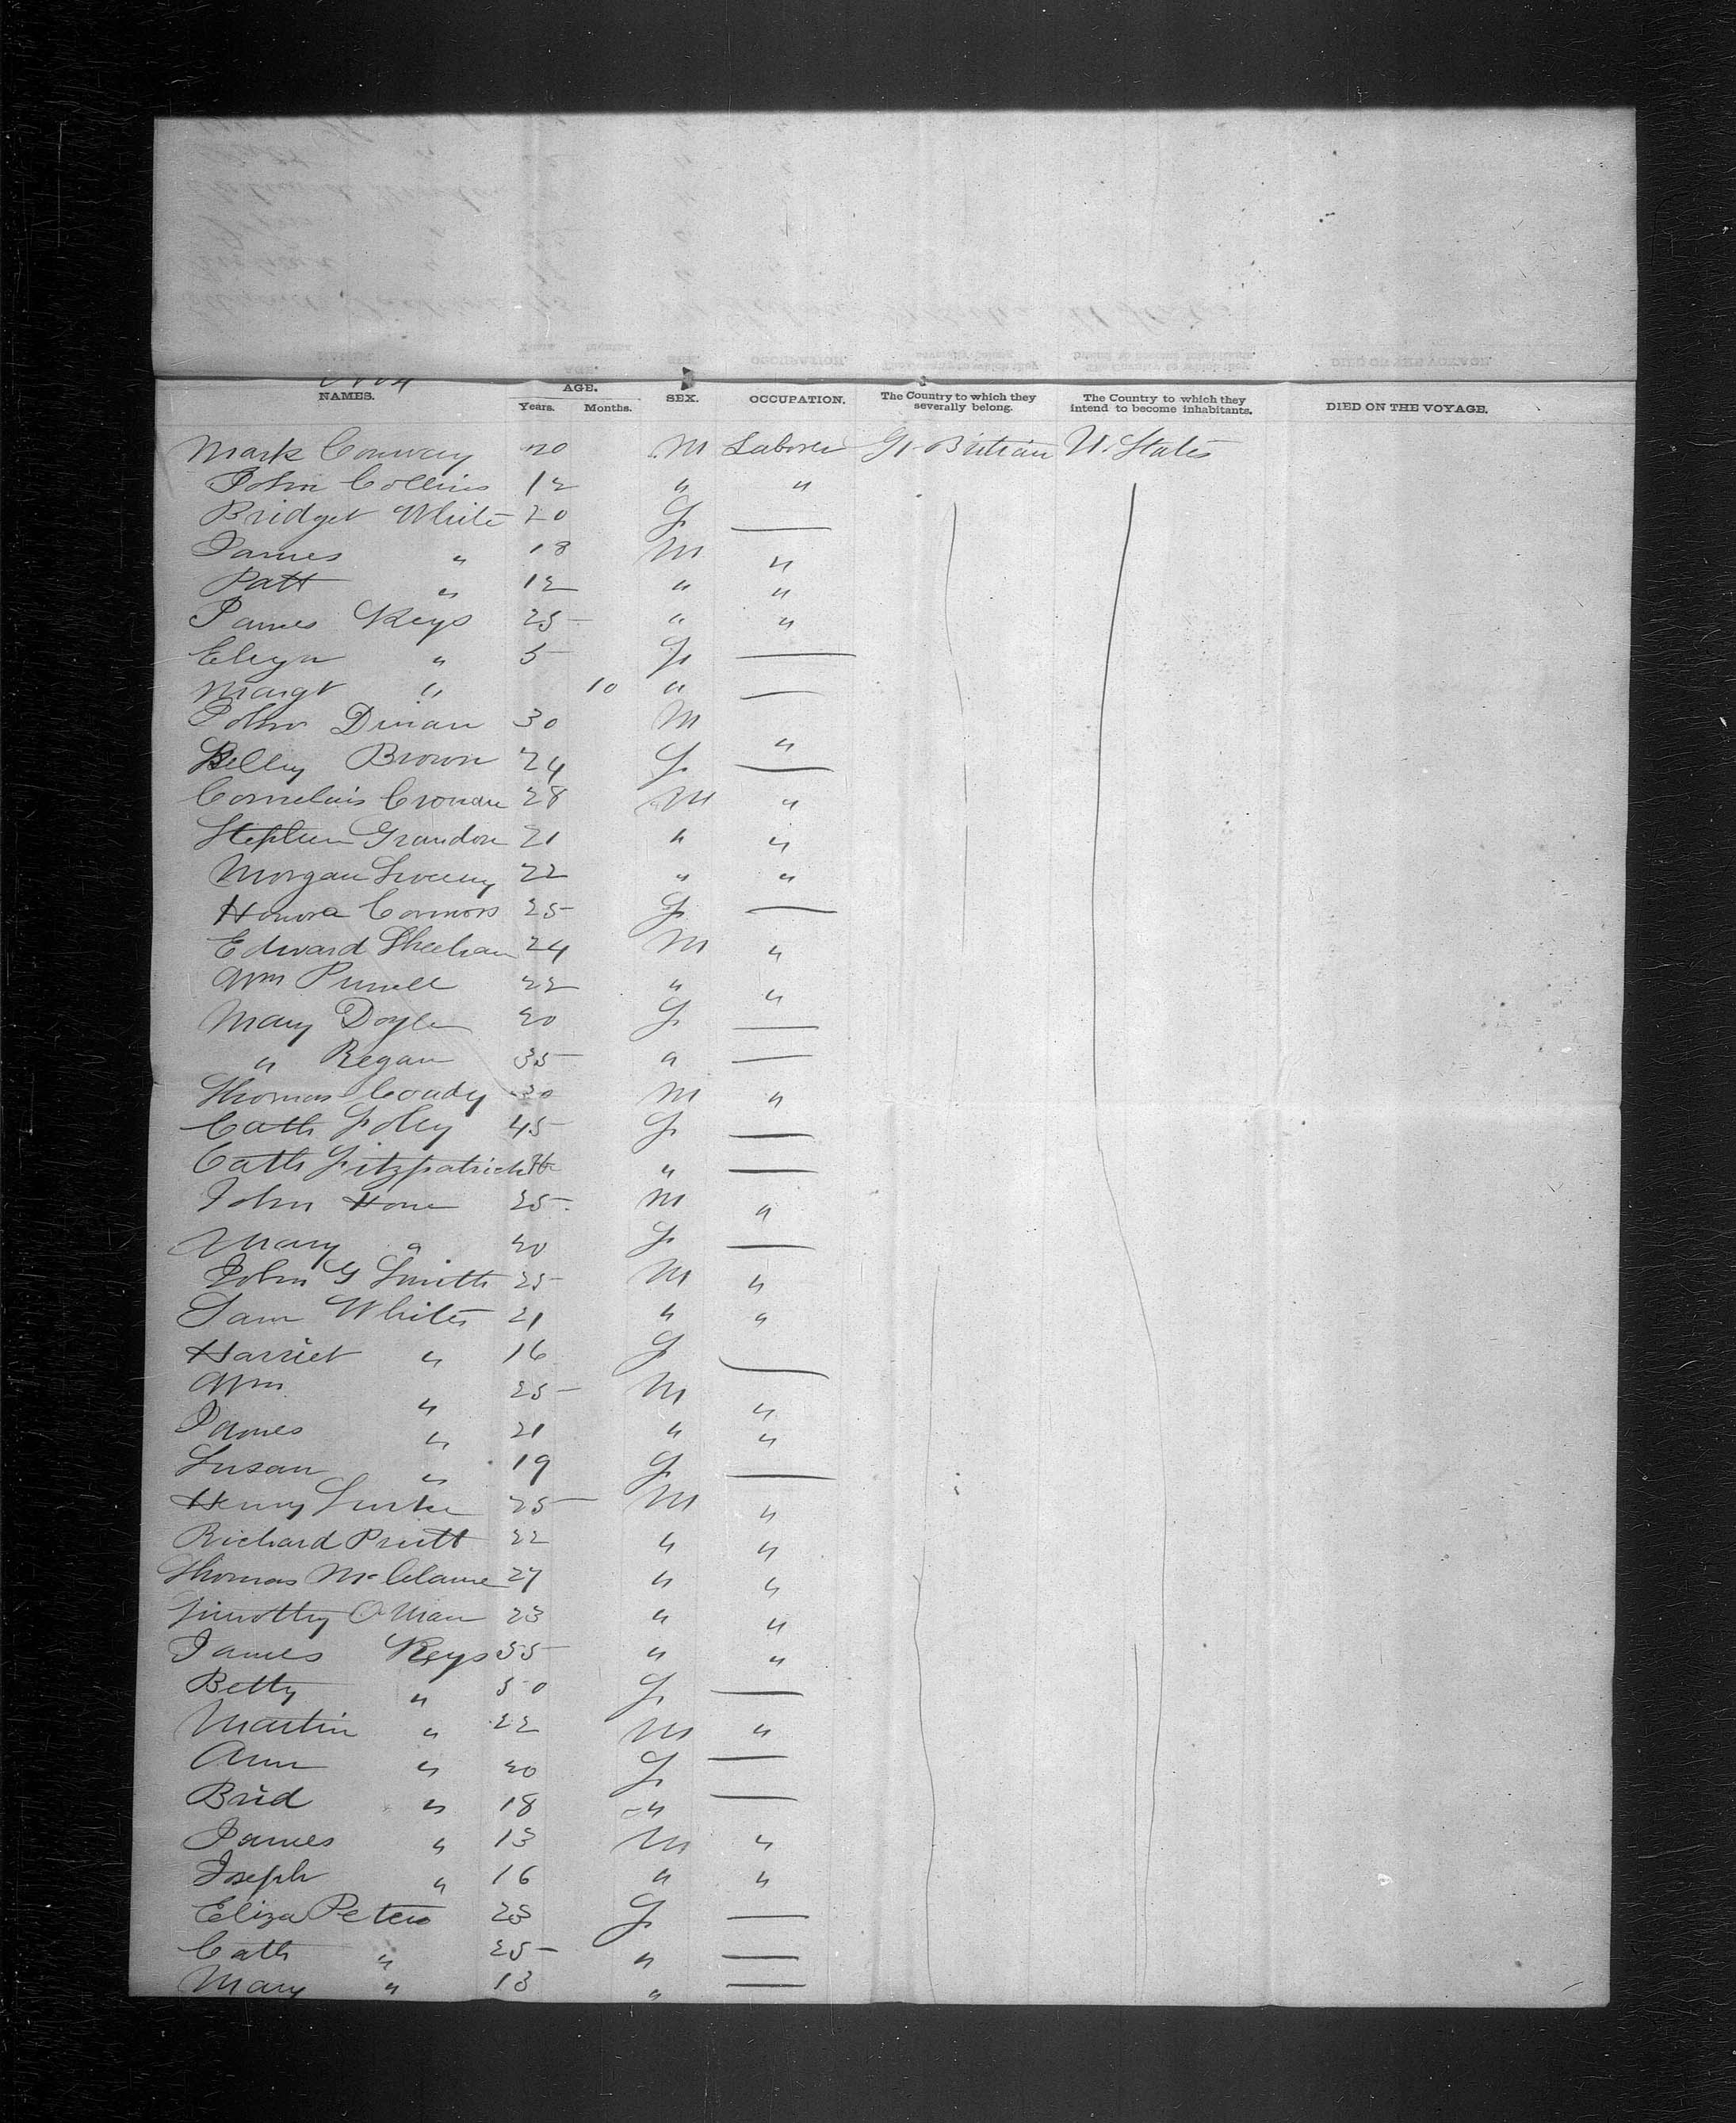 NAMES. AGE. SEX. OCCUPATION. The Country to which they severally belong. The Country to which they intend to become inhabitants. DIED ON THE VOYAGE.
Years. Months.
Mark Conway 20 M Laborer Gt. Britian U. States
John Collins 12 " "
Bridget White 20 F —
James " 18 M "
Patt " 12 " "
James Keys 25 " "
Eliza " 5 F —
Margt " 10 " —
John Dinan 30 M "
Brown 24 F —
Cornelius Cronan 28 M "
Stephen Grandon 21 " "
Morgan Sweeny 22 " "
Honora Connors 25 F —
Edward Sheehan 24 M "
Wm Purcell 22 " "
Mary Doyle 20 F —
" Regan 35 " —
Thomas Coady 30 M "
Cath Foley 45 F —
Cath Fitzpatrick " —
John Hone 25 M "
Mary " 20 F —
John G Smith 25 M "
Sam White 21 " "
Harriet " 16 F —
Wm " 25 M "
James " 21 " "
Susan " 19 F —
Henry 25 M "
Richard Pruitt 22 " "
Thomas 27 " "
Timothy 23 " "
James Keys 55 " "
Betty " 50 F —
Martin " 22 M "
Ann " 20 F —
Brid " 18 " —
James " 13 M "
Joseph " 16 " "
Eliza Peters 23 F —
Cath " 25 " —
Mary " 13 " —